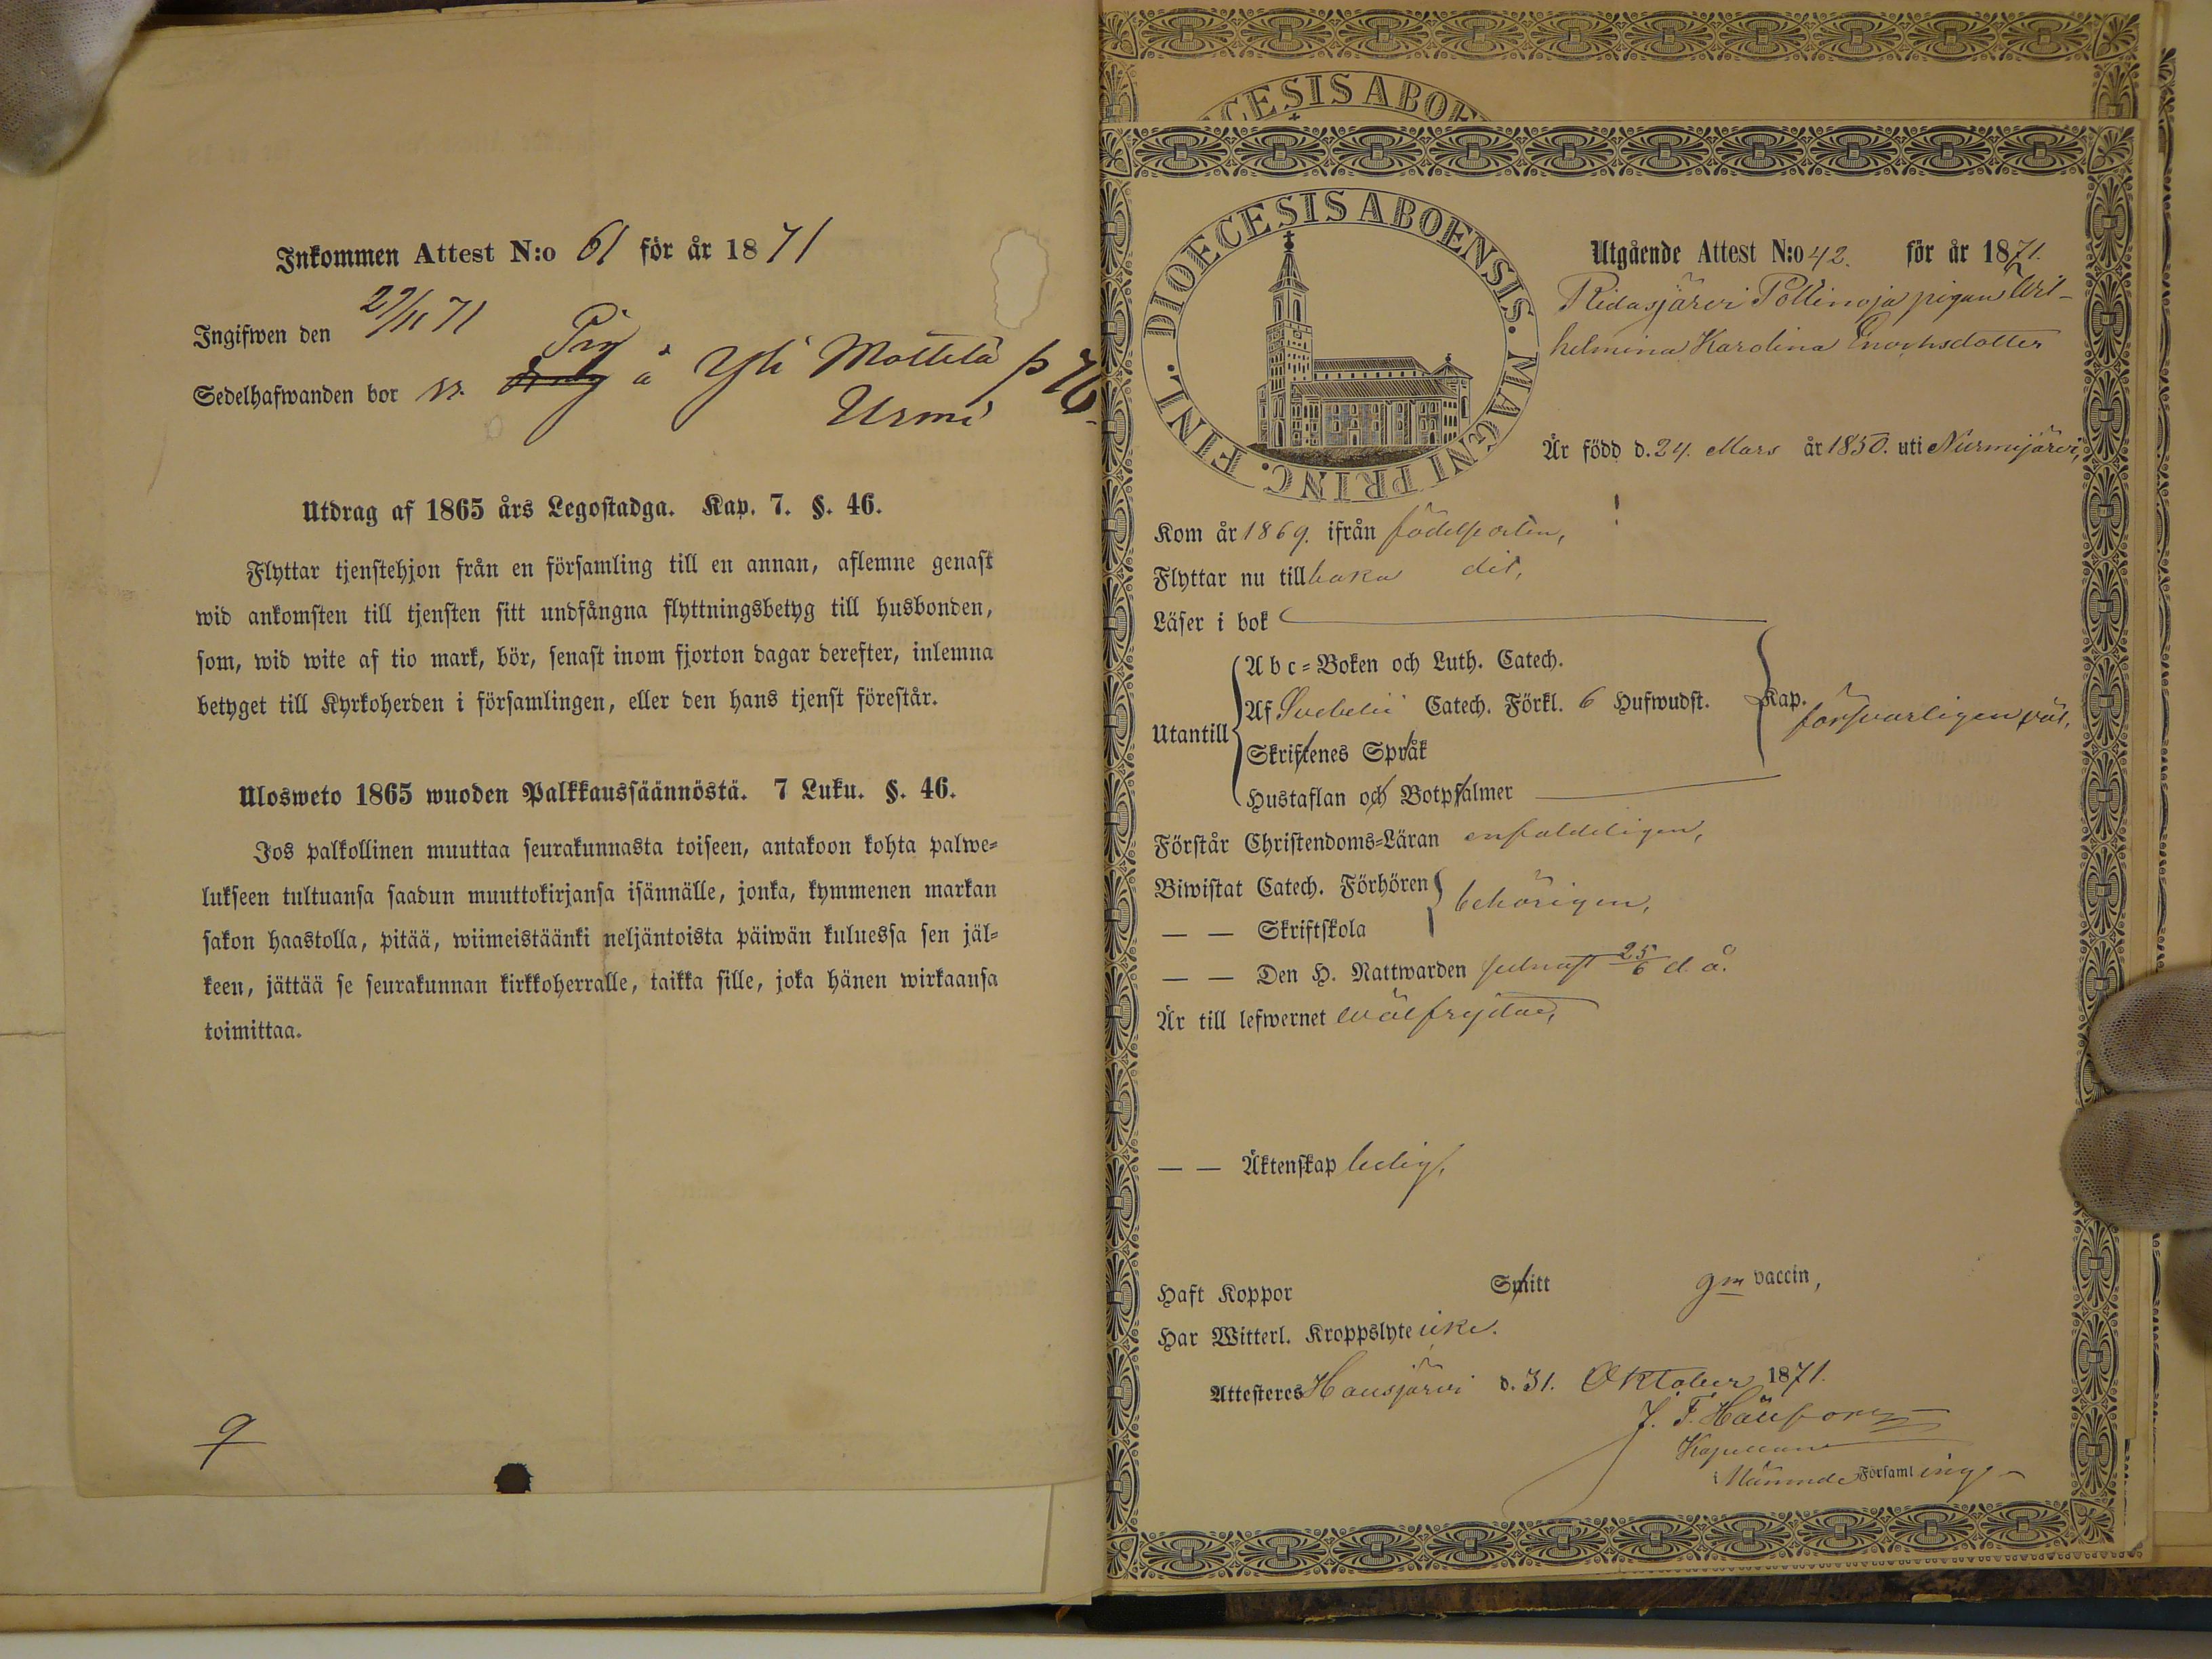 Inkommen Attest N:o 61 för år 1871
Ingifwen den 27/11 71
Sedelhafwanden bor ss. Pig å Yli Mottela p 76
Urmi
Utdrag af 1865 års Legostadga. Kap. 7. §. 46.
Flyttar tjenstehjon från en församling till en annan, aflemne genast
wid ankomsten till tjensten sitt undfångna flyttningsbetyg till husbonden,
som, wid wite af tio mark, bör, senast inom fjorton dagar derefter, inlemna
betyget till Kyrkoherden i församlingen, eller den hans tjenst förestår.
Ulosweto 1865 wuoden Palkkaussäännöstä. 7 Luku. §. 46.
Jos palkollinen muuttaa seurakunnasta toiseen, antakoon kohta palwe-
lukseen tultuansa saadun muuttokirjansa isännälle, jonka, kymmenen markan
sakon haastolla, pitää, wiimeistäänki neljäntoista päiwän kuluessa sen jäl-
keen, jättää se seurakunnan kirkkoherralle, taikka sille, joka hänen wirkaansa
toimittaa.
9
CESIS ABOE
DIOECESIS ABOENSIS. MAGNI PRINC. FINL.
Utgående Attest N:o 42. för år 1871.
Ridasjärvi Pollinoja pigan Wil-
helmina Karolina Enochsdotter
Är född d. 24. Mars år 1850. uti Nurmijärvi,
Kom år 1869. ifrån födelseorten,
Flyttar nu tillbaka dit,
Läser i bok
Abc-Boken och Luth. Catech.
Af Svebelii Catech. Förkl. 6 Hufwudst. Kap. försvarligen väl,
Utantill
Skriftenes Språk
Hustaflan och Botpsalmer
Förstår Christendoms-Läran enfaldeligen,
Biwistat Catech. Förhören behörigen,
— — Skriftskola
— — Den H. Nattwarden sednast 25/6 d. å.
Är till lefwernet wälfrejdad,
— — Äktenskap ledig,
Haft Koppor Smitt gm vaccin,
Har Witterl. Kroppslyte icke.
Attesteres Hausjärvi d. 31. Oktober 1871.
J. F.
Kapellan
i Nämnde Församling